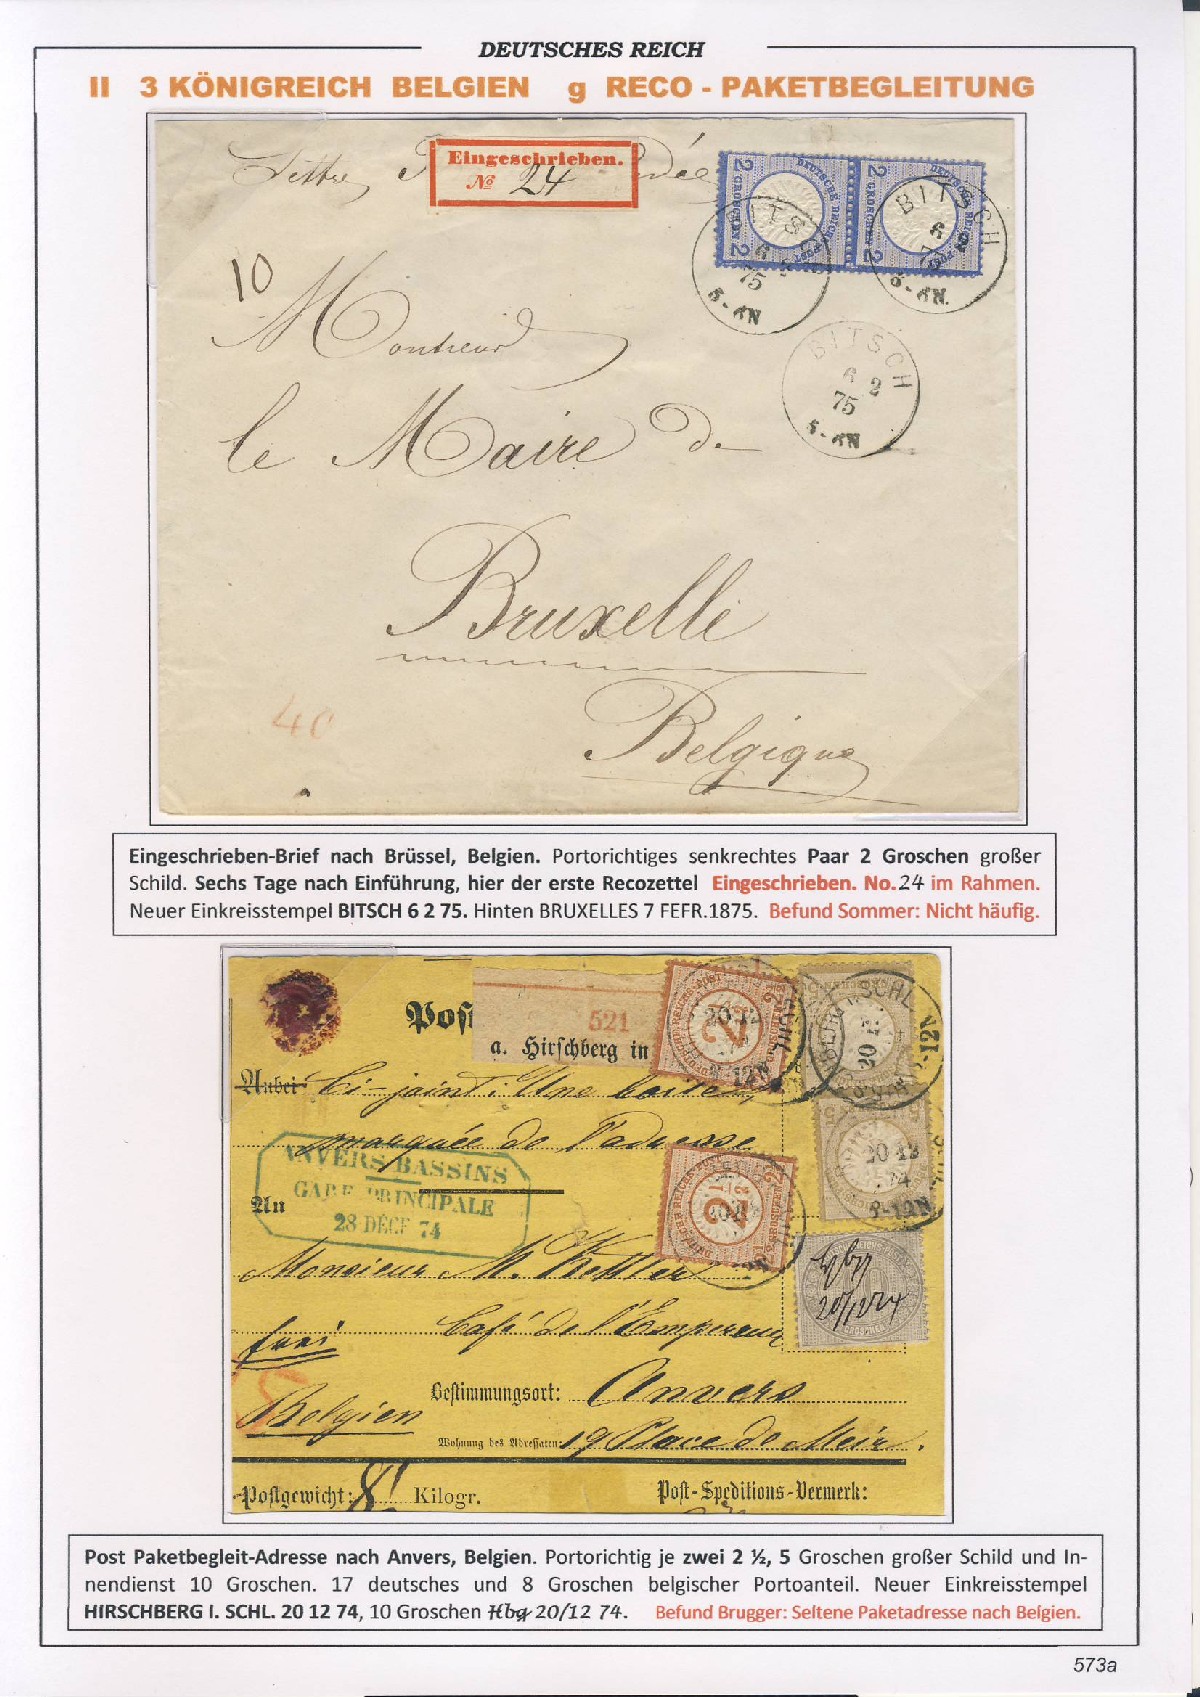 DEUTSCHES REICH
II 3 KÖNIGREICH BELGIEN g RECO - PAKETBEGLEITUNG
Lettre
Eingeschrieben.
No 24
2 GROSCHEN 2 DEUTSCHE REICHS-POST
2 GROSCHEN 2 DEUTSCHE REICHS-POST
BITSCH 6 2 75 5-6N
BITSCH 6 2 75 5-6N
BITSCH 6 2 75 5-6N
10
Monsieur
le Maire de
Bruxelle
Belgique
40
Eingeschrieben-Brief nach Brüssel, Belgien. Portorichtiges senkrechtes Paar 2 Groschen großer
Schild. Sechs Tage nach Einführung, hier der erste Recozettel Eingeschrieben. No.24 im Rahmen.
Neuer Einkreisstempel BITSCH 6 2 75. Hinten BRUXELLES 7 FEFR.1875. Befund Sommer: Nicht häufig.
Post
521
a. Hirschberg in
20 12
8-12N
Anbei Ci-joint: Une boite
marquée de l'adresse
ANVERS-BASSINS
GARE PRINCIPALE
28 DÉCE 74
An
20 12 74 8-12N
Monsieur M. Kettler
Hbg
20/12 74
Café de l'Empereur
frei
Bestimmungsort: Anvers
Belgien
Wohnung des Adressaten: 19 Place de Meir.
Postgewicht: 8 Kilogr. Post-Speditions-Vermerk:
Post Paketbegleit-Adresse nach Anvers, Belgien. Portorichtig je zwei 2 ½, 5 Groschen großer Schild und In-
nendienst 10 Groschen. 17 deutsches und 8 Groschen belgischer Portoanteil. Neuer Einkreisstempel
HIRSCHBERG I. SCHL. 20 12 74, 10 Groschen Hbg 20/12 74. Befund Brugger: Seltene Paketadresse nach Belgien.
573a